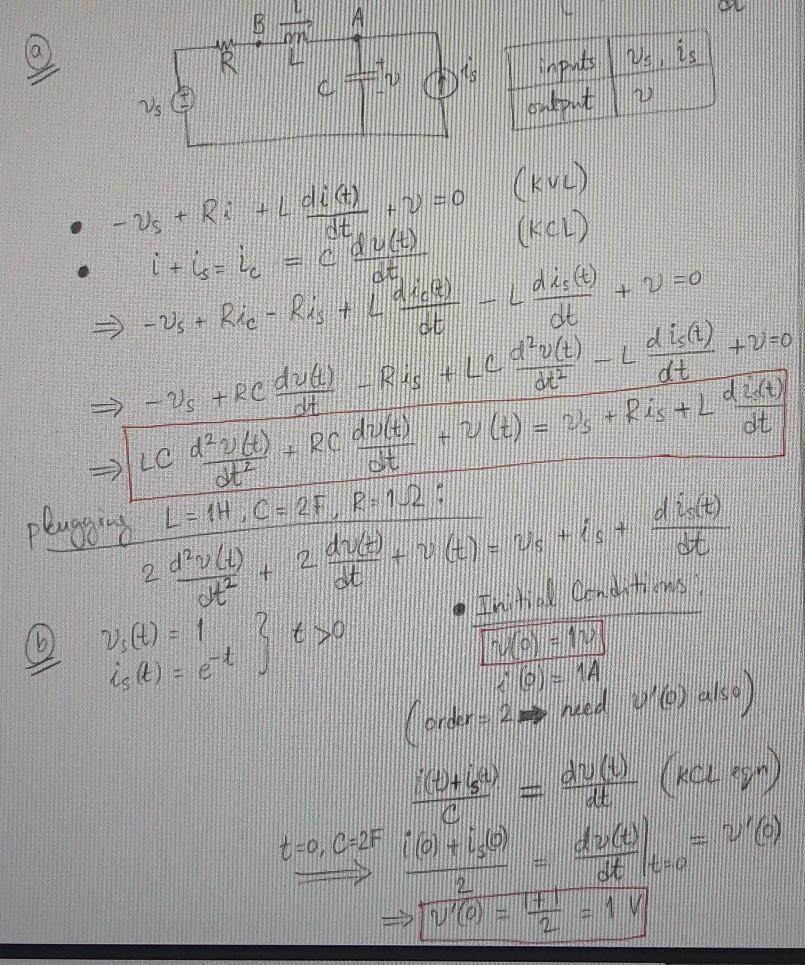 (a)
B i A
R L C + v - is
vs + -
inputs | vs, is
output | v
• -vs + Ri + L di(t)/dt + v = 0 (KVL)
• i + is = ic = C dv(t)/dt (KCL)
⇒ -vs + Ric - Ris + L dic(t)/dt - L dis(t)/dt + v = 0
⇒ -vs + RC dv(t)/dt - Ris + LC d²v(t)/dt² - L dis(t)/dt + v = 0
⇒ LC d²v(t)/dt² + RC dv(t)/dt + v(t) = vs + Ris + L dis(t)/dt
plugging L = 1H, C = 2F, R = 1Ω :
2 d²v(t)/dt² + 2 dv(t)/dt + v(t) = vs + is + dis(t)/dt
(b) vs(t) = 1
is(t) = e^-t } t > 0
• Initial Conditions:
v(0) = 1v
i(0) = 1A
(order = 2 ➡ need v'(0) also)
(i(t) + is(t))/C = dv(t)/dt (KCL eqn)
t=0, C=2F ⇒ (i(0) + is(0))/2 = dv(t)/dt |t=0 = v'(0)
⇒ v'(0) = (1+1)/2 = 1 V